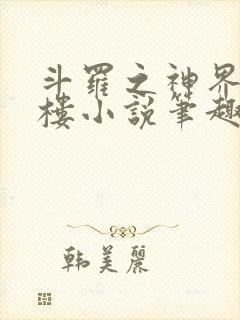 斗羅之神界
樓小說筆趣
韩美麗